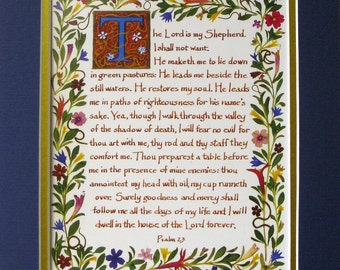 The Lord is my Shepherd.
I shall not want.
He maketh me to lie down
in green pastures: He leads me beside the
still waters. He restores my soul. He leads
me in paths of righteousness for his name's
sake. Yea, though I walk through the valley
of the shadow of death, I will fear no evil for
thou art with me, thy rod and thy staff they
comfort me. Thou preparest a table before
me in the presence of mine enemies: thou
annointest my head with oil, my cup runneth
over. Surely goodness and mercy shall
follow me all the days of my life and I will
dwell in the house of the Lord forever.
Psalm 23